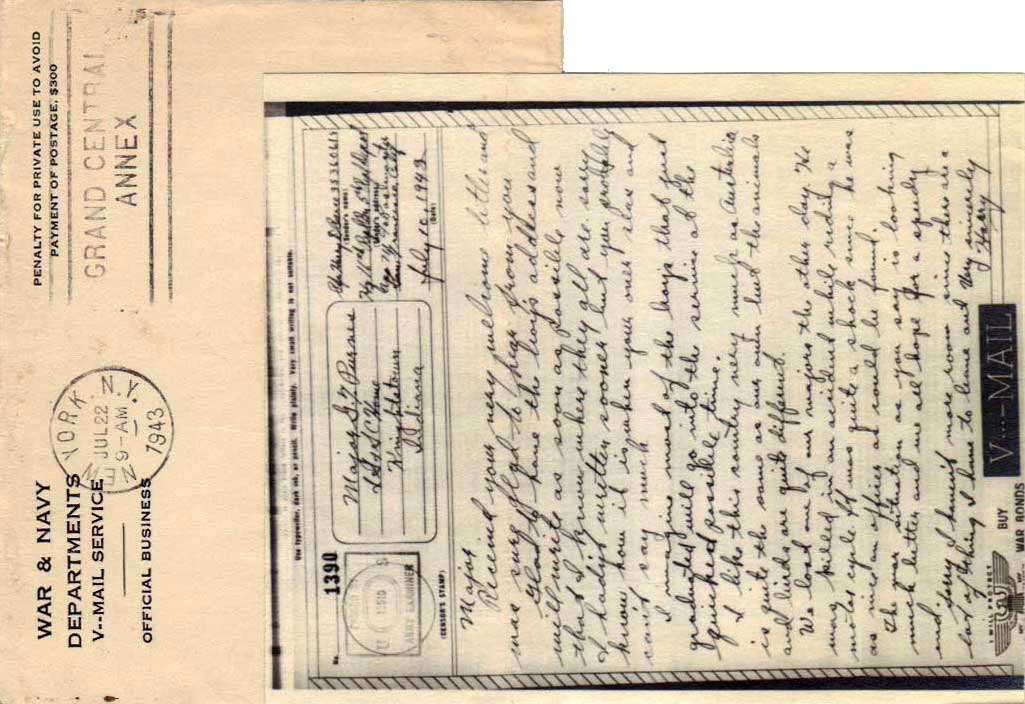 WAR & NAVY
DEPARTMENTS
V--MAIL SERVICE
OFFICIAL BUSINESS
PENALTY FOR PRIVATE USE TO AVOID
PAYMENT OF POSTAGE, $300
NEW YORK, N.Y.
JUL 22
9-AM
1943
GRAND CENTRAL
ANNEX
Use typewriter, dark ink, or pencil. Write plainly. Very small writing is not suitable.
No.
1390
(CENSOR'S STAMP)
ARMY EXAMINER
Major S. T. Purses
I.S.S.C. Home
Knightstown
Indiana
(Sender's name)
(Sender's address)
San Francisco, Calif
July 10, 1943
(Date)
Major
Received your very welcome letter and
was sure glad to hear from you
Glad to have the boys address and
will write as soon as possible, now
that I know where they all are. sorry
I hadn't written sooner but you probably
know how it is when your over seas and
can't say much
I imagine most of the boys that just
graduated will go into the service at the
quickest possible time.
I like this country very much as Australia
is quite the same as our own but the animals
and birds are quite different.
We lost one of our majors the other day. He
was killed in an accident while riding a
motorcycle. It was quite a shock since he was
as nice an officer as could be found.
The war situation as you say is looking
much better and we all hope for a speedy
end.
Sorry I hadn't more room since there are a
lot of things I have to leave out
Very sincerely
Harry
V-MAIL
I WILL PROTECT
BUY
WAR BONDS